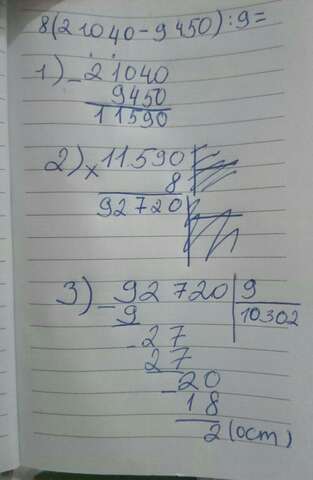 8(21040-9450):9=
1) - 21040
9450
11590
2) x 11590
8
92720
3) - 92720 9
9 10302
- 27
27
- 20
18
2 (ост)